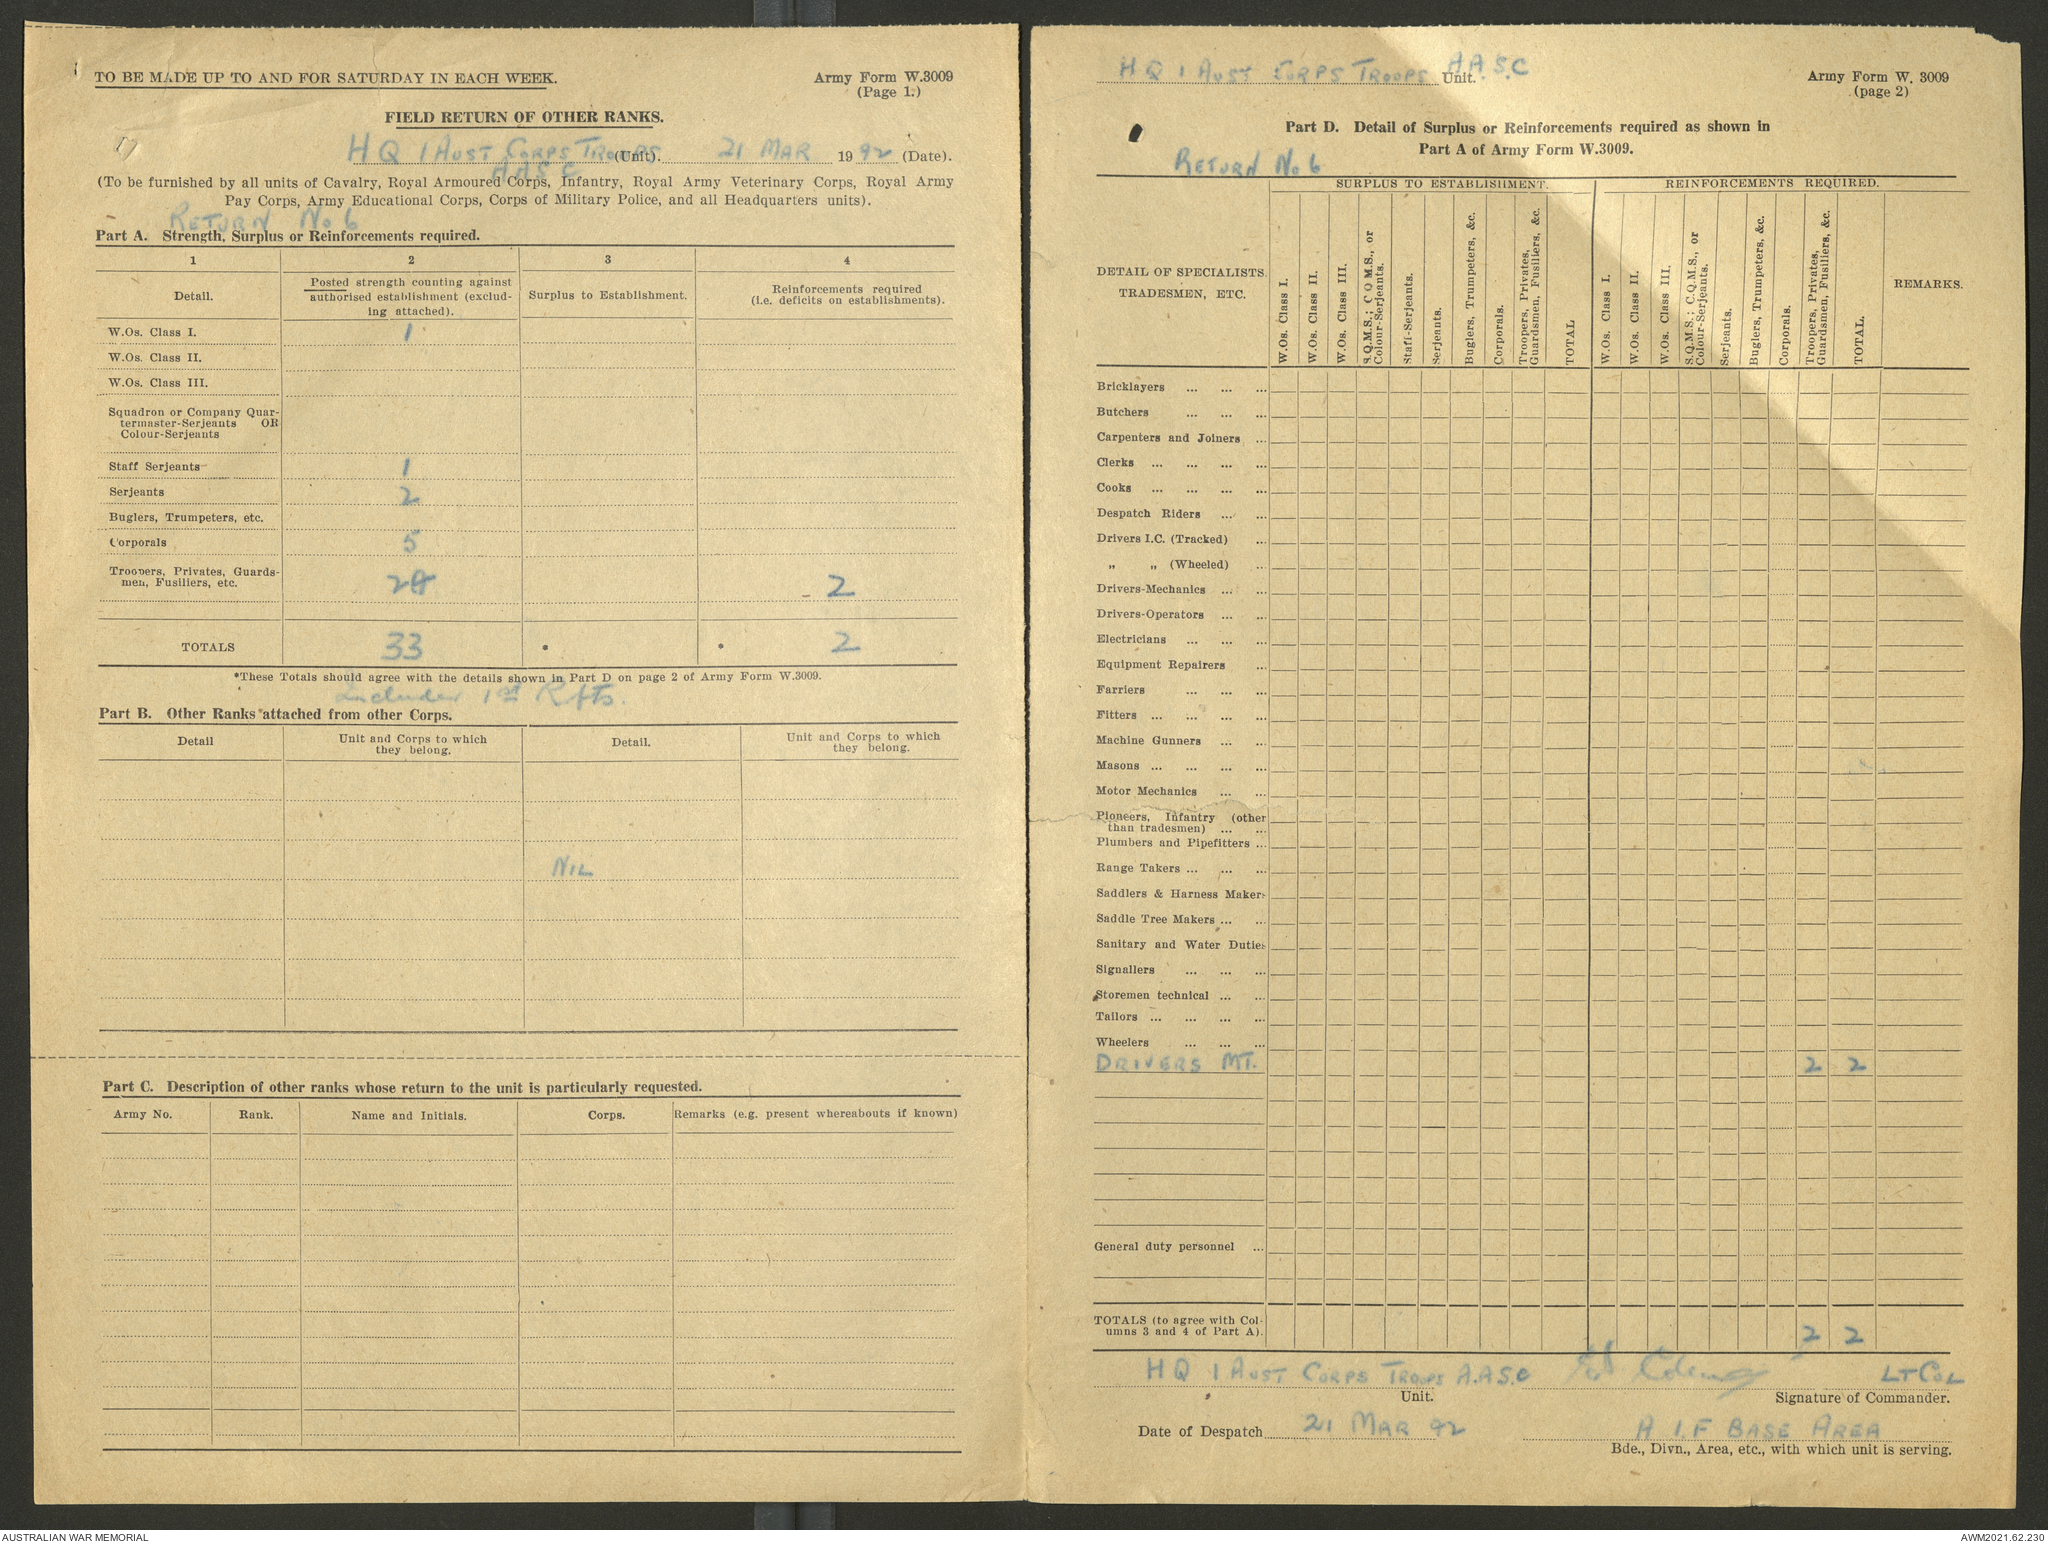 TO BE MADE UP TO AND FOR SATURDAY IN EACH WEEK.
Army Form W.3009
(Page 1.)
FIELD RETURN OF OTHER RANKS.
HQ 1 AUST CORPS TROOPS (Unit). 21 MAR 1942 (Date).
A A S C
(To be furnished by all units of Cavalry, Royal Armoured Corps, Infantry, Royal Army Veterinary Corps, Royal Army
Pay Corps, Army Educational Corps, Corps of Military Police, and all Headquarters units).
RETURN No 6
Part A. Strength, Surplus or Reinforcements required.
1 2 3 4
Detail.
Posted strength counting against
authorised establishment (exclud-
ing attached).
Surplus to Establishment.
Reinforcements required
(I.e. deficits on establishments).
W.Os. Class I. 1
W.Os. Class II.
W.Os. Class III.
Squadron or Company Quar-
termaster-Serjeants OR
Colour-Serjeants
Staff Serjeants 1
Serjeants 2
Buglers, Trumpeters, etc.
Corporals 5
Troopers, Privates, Guards-
men, Fusiliers, etc. 2
TOTALS 33 * * 2
*These Totals should agree with the details shown in Part D on page 2 of Army Form W.3009.
Includes 1st Rfts.
Part B. Other Ranks attached from other Corps.
Detail
Unit and Corps to which
they belong.
Detail.
Unit and Corps to which
they belong.
NIL
Part C. Description of other ranks whose return to the unit is particularly requested.
Army No. Rank. Name and Initials. Corps. Remarks (e.g. present whereabouts if known)
HQ 1 AUST CORPS TROOPS A.A.S.C Unit.
Army Form W. 3009
(page 2)
Part D. Detail of Surplus or Reinforcements required as shown in
Part A of Army Form W.3009.
RETURN No 6
SURPLUS TO ESTABLISHMENT. REINFORCEMENTS REQUIRED.
DETAIL OF SPECIALISTS
TRADESMEN, ETC.
W.Os. Class I.
W.Os. Class II.
W.Os. Class III.
S.Q.M.S.; C.Q.M.S., or
Colour-Serjeants.
Staff-Serjeants.
Serjeants.
Buglers, Trumpeters, &c.
Corporals.
Troopers, Privates,
Guardsmen, Fusiliers, &c.
TOTAL
W.Os. Class I.
W.Os. Class II.
W.Os. Class III.
S.Q.M.S.; C.Q.M.S., or
Colour-Serjeants.
Serjeants.
Buglers, Trumpeters, &c.
Corporals.
Troopers, Privates,
Guardsmen, Fusiliers, &c.
TOTAL.
REMARKS.
Bricklayers ... ... ...
Butchers ... ... ...
Carpenters and Joiners ...
Clerks ... ... ... ...
Cooks ... ... ... ...
Despatch Riders ... ...
Drivers I.C. (Tracked) ...
„ „ (Wheeled) ...
Drivers-Mechanics ... ...
Drivers-Operators ... ...
Electricians ... ... ...
Equipment Repairers ...
Farriers ... ... ...
Fitters ... ... ... ...
Machine Gunners ... ...
Masons ... ... ... ...
Motor Mechanics ... ...
Pioneers, Infantry (other
than tradesmen) ... ...
Plumbers and Pipefitters ...
Range Takers ... ... ...
Saddlers & Harness Makers
Saddle Tree Makers ... ...
Sanitary and Water Duties
Signallers ... ... ...
Storemen technical ... ...
Tailors ... ... ... ...
Wheelers ... ... ...
DRIVERS MT. 2 2
General duty personnel ...
TOTALS (to agree with Col-
umns 3 and 4 of Part A). 2 2
HQ 1 AUST CORPS TROOPS A.A.S.C LT COL
Unit. Signature of Commander.
Date of Despatch 21 MAR 42 A I.F BASE AREA
Bde., Divn., Area, etc., with which unit is serving.
AUSTRALIAN WAR MEMORIAL
AWM2021.62.230